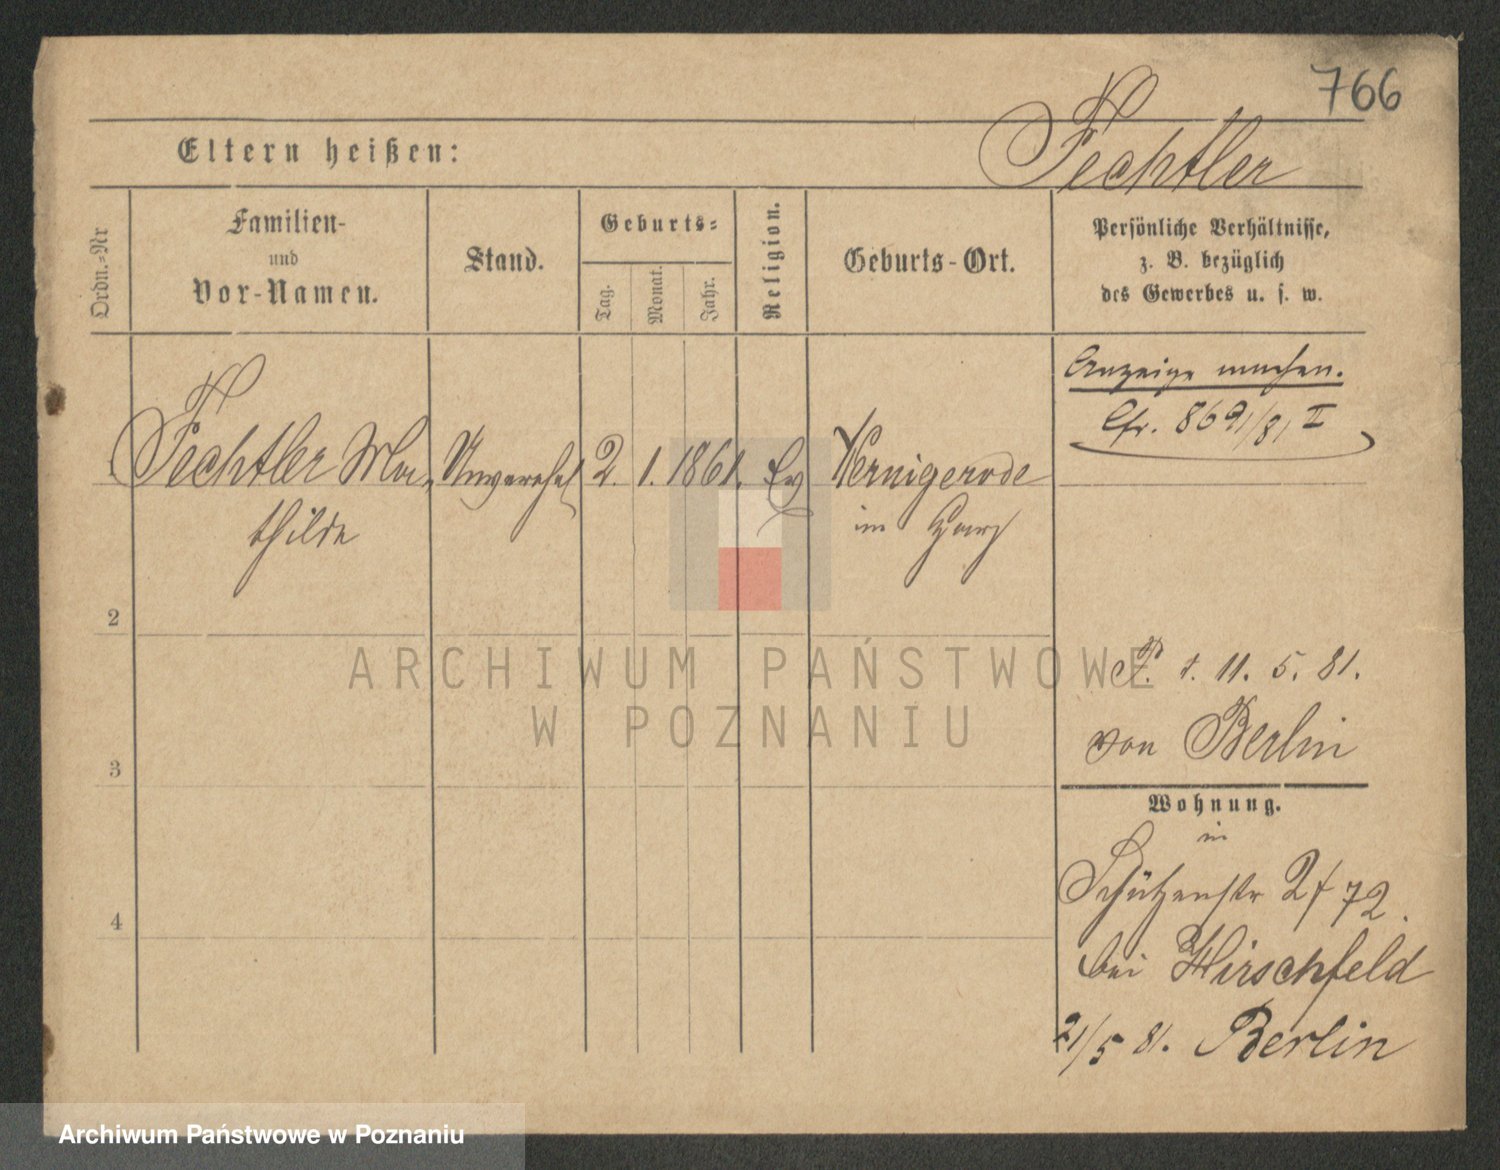 766
Fechtler
Eltern heißen:
Ordn.=Nr
Familien-
und
Vor-Namen.
Stand.
Geburts-
Tag.
Monat.
Jahr.
Religion.
Geburts-Ort.
Persönliche Verhältnisse,
z. B. bezüglich
des Gewerbes u. s. w.
Anzeige machen.
Cfr. 8691/81 II
1 Fechtler Ma- Unverehel 2. 1. 1861. Ev Wernigerode
thilde im Harz
2
P. 1. 11. 5. 81.
von Berlin
3
Wohnung.
in
Schützenstr 2f 72.
4
bei Hirschfeld
21/5 81. Berlin
ARCHIWUM PAŃSTWOWE
W POZNANIU
Archiwum Państwowe w Poznaniu